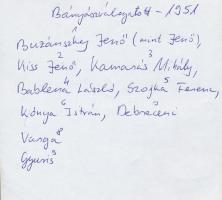 Bányászválogatott - 1951
1
Buzánszky Jenő (mint Jenő),
2 3
Kiss Jenő, Kamarás Mihály,
4 5
Bablena László, Szojka Ferenc,
6 7
Kónya István, Debreceni
Varga 8
Gyuris 9